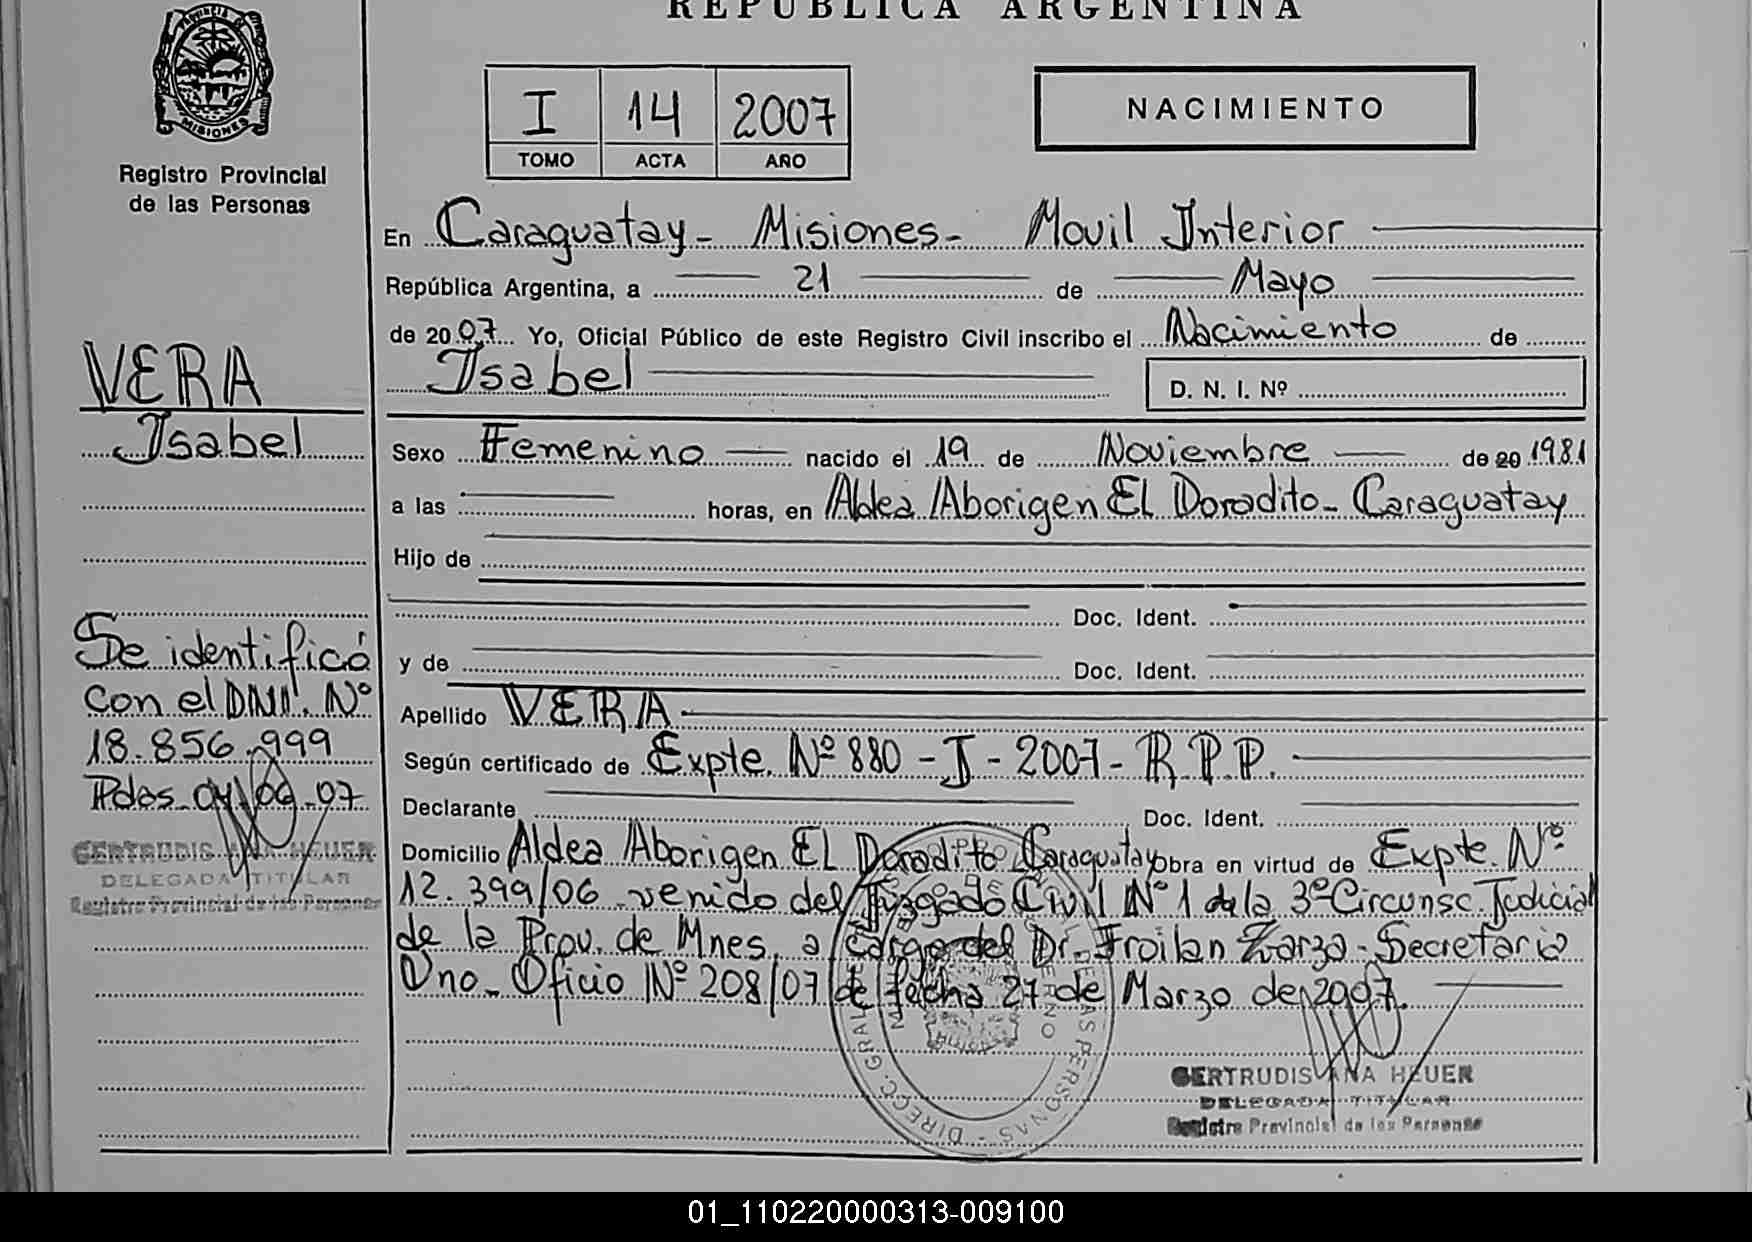 REPUBLICA ARGENTINA
PROVINCIA DE
MISIONES
Registro Provincial
de las Personas
I 14 2007
TOMO ACTA AÑO
NACIMIENTO
En Caraguatay - Misiones - Movil Interior
República Argentina, a 21 de Mayo
de 2007 Yo, Oficial Público de este Registro Civil inscribo el Nacimiento de
Isabel
D. N. I. Nº
Sexo Femenino nacido el 19 de Noviembre de 20 1981
a las horas, en Aldea Aborigen El Doradito - Caraguatay
Hijo de
Doc. Ident.
y de Doc. Ident.
Apellido VERA
Según certificado de Expte. Nº 880 - J - 2007 - R.P.P.
Declarante Doc. Ident.
Domicilio Aldea Aborigen El Doradito Caraguatay Obra en virtud de Expte. Nº
12.399/06 venido del Juzgado Civil Nº 1 de la 3º Circunsc. Judicial
de la Prov. de Mnes. a cargo del Dr. Froilan Zarza - Secretaria
Uno - Oficio Nº 208/07 de fecha 27 de Marzo de 2007.
GERTRUDIS ANA HEUER
DELEGADA TITULAR
Registro Provincial de las Personas
VERA
Isabel
Se identificó
con el DNI. Nº
18.856.999
Pdas 04/09-07
GERTRUDIS ANA HEUER
DELEGADA TITULAR
Registro Provincial de las Personas
DIRECC. GRAL. PERSONAS
01_110220000313-009100